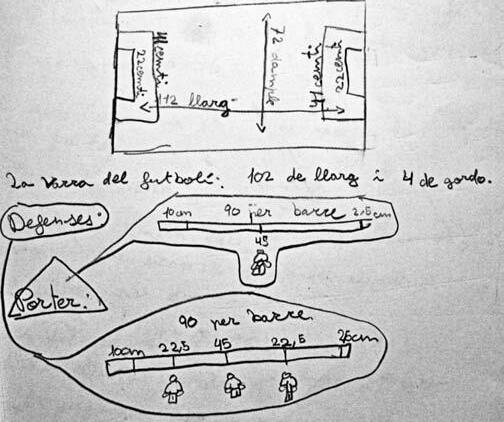 22centi
112 llarg
72 dample
22 centi
La varra del futbolí: 102 de llarg i 4 de gordo.
Defenses:
10cm 90 per barre 2,5cm
45
Porter:
90 per barre
10cm 22,5 45 22,5 25cm